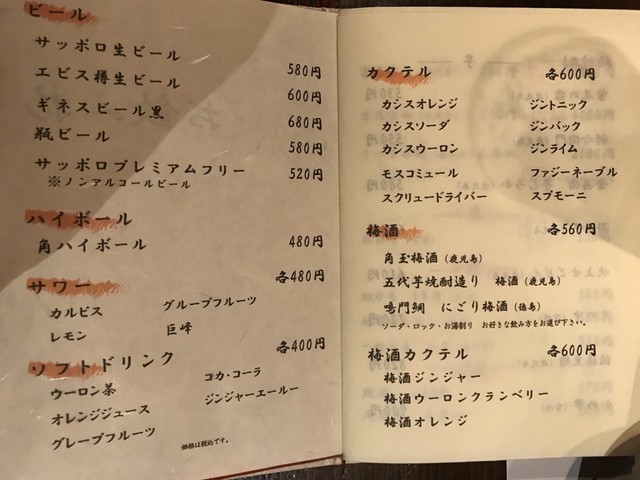 ビール
サッポロ生ビール 580円
エビス樽生ビール 600円
ギネスビール黒 680円
瓶ビール 580円
サッポロプレミアムフリー 520円
※ノンアルコールビール
ハイボール
角ハイボール 480円
サワー 各480円
カルピス グループフルーツ
レモン 巨峰
ソフトドリンク 各400円
ウーロン茶 コカ・コーラ
オレンジジュース ジンジャーエールー
グレープフルーツ
価格は税込です。
カクテル 各600円
カシスオレンジ ジントニック
カシスソーダ ジンバック
カシスウーロン ジンライム
モスコミュール ファジーネーブル
スクリュードライバー スプモーニ
梅酒 各560円
角玉梅酒(鹿児島)
五代芋焼酎造り 梅酒(鹿児島)
鳴門鯛 にごり梅酒(徳島)
ソーダ・ロック・お湯割り お好きな飲み方をお選び下さい。
梅酒カクテル 各600円
梅酒ジンジャー
梅酒ウーロンクランベリー
梅酒オレンジ